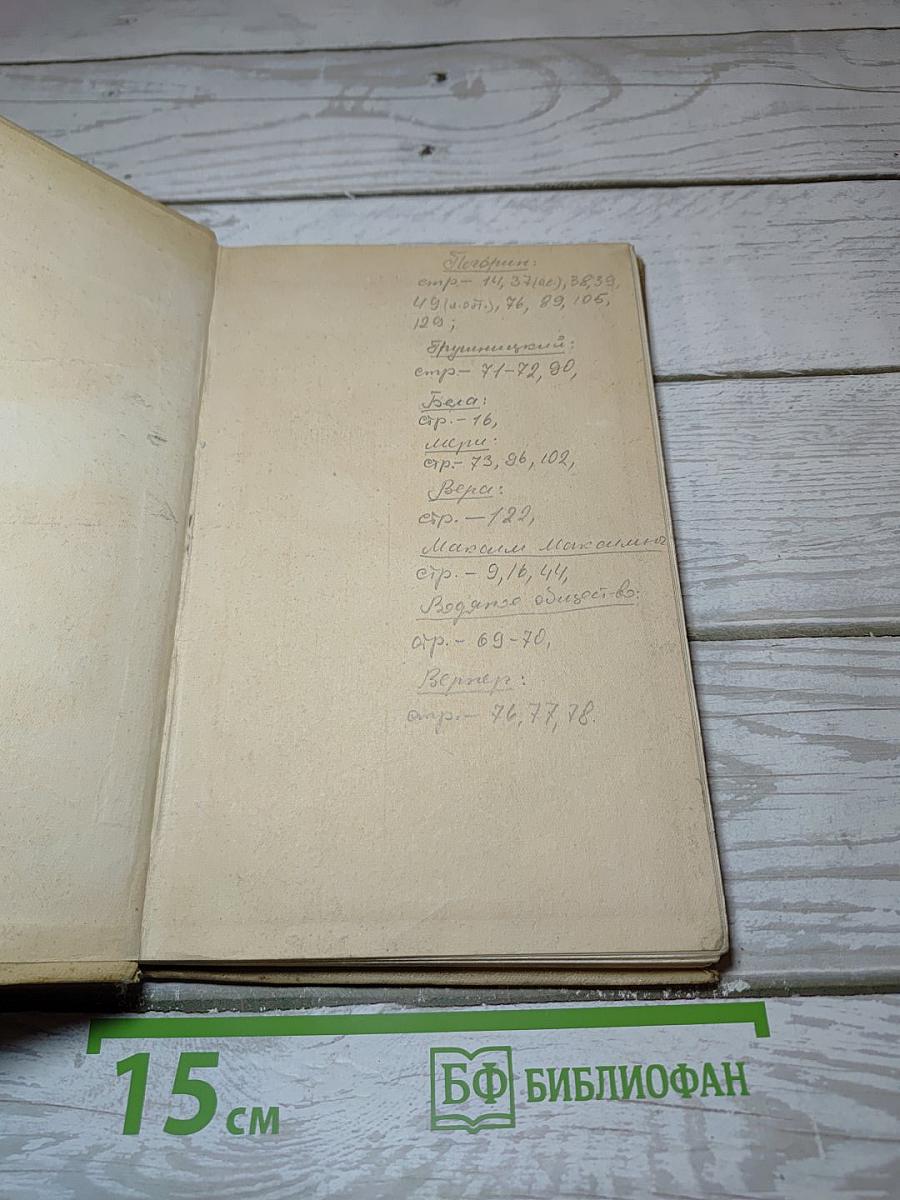 Печорин:
стр.- 14, 37(ос.), 38,39,
49(л.от.), 76, 89, 105,
129;
Грушницкий:
стр.- 71-72, 90,
Бела:
стр.-16,
Мери:
стр.- 73, 96, 102,
Вера:
стр. - 122,
Максим Максимыч
стр. - 9, 16, 44,
Водяное общество:
стр.- 69-70,
Вернер:
стр.- 76, 77, 78.
15 см
БФ БИБЛИОФАН